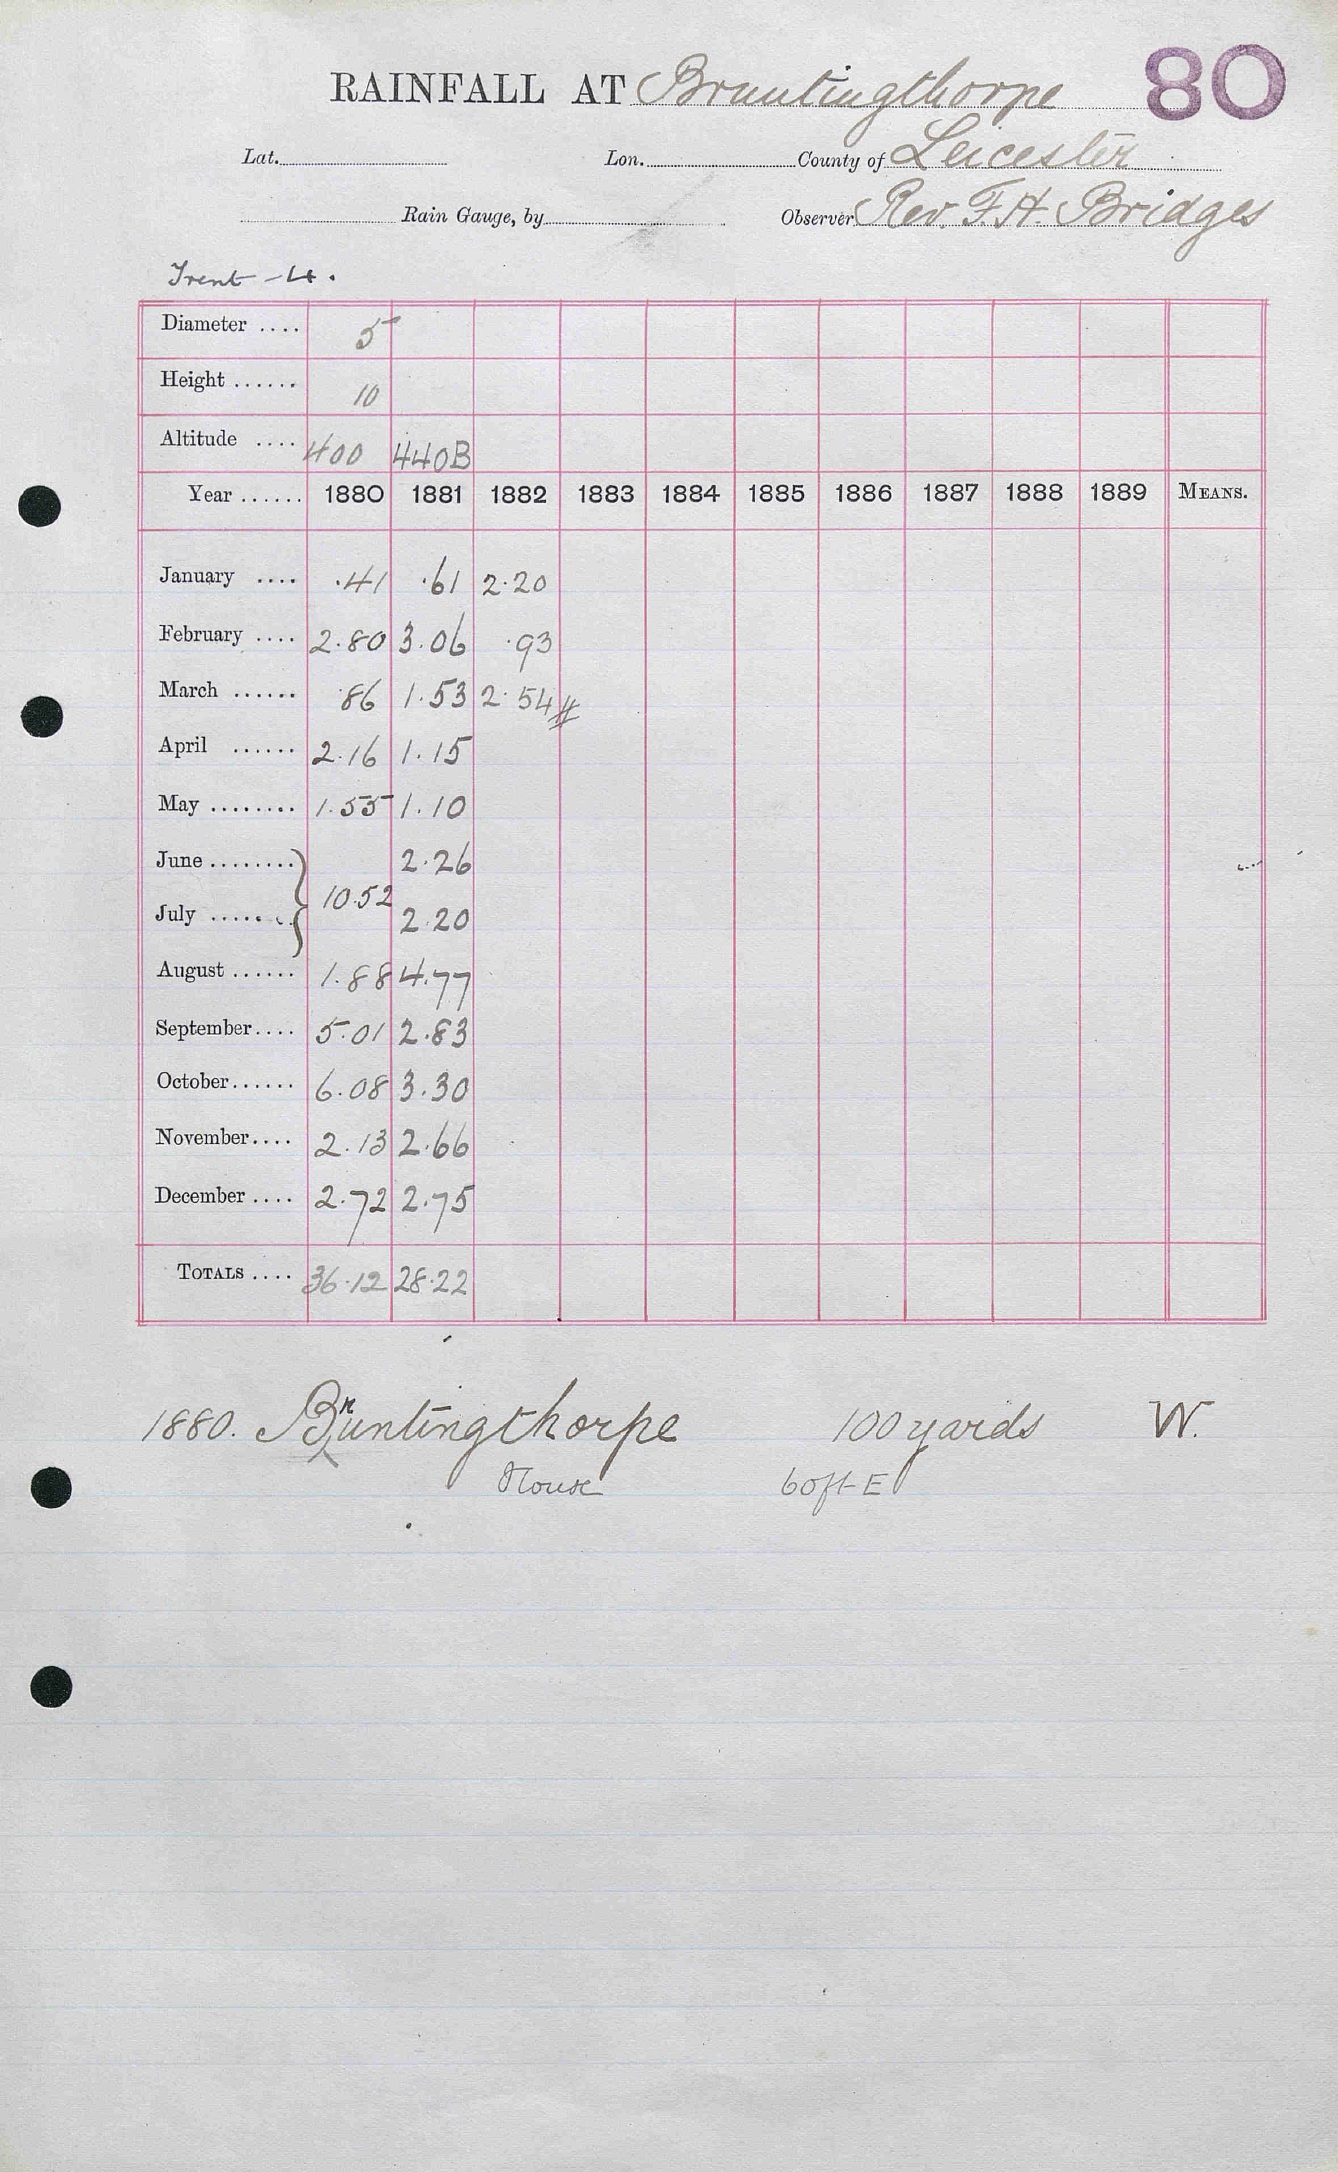 RAINFALL AT Bruntingthorpe 80
Lat. Lon. County of Leicester
Rain Gauge, by Observer Rev. F. H. Bridges
Trent - 4.
Diameter .... 5
Height ...... 10
Altitude .... 400 440B
Year ...... 1880 1881 1882 1883 1884 1885 1886 1887 1888 1889 MEANS.
January .... .41 .61 2.20
February .... 2.80 3.06 .93
March ...... .86 1.53 2.54 //
April ...... 2.16 1.15
May ........ 1.55 1.10
June ........ 2.26
10.52
July ...... 2.20
August ...... 1.88 4.77
September .... 5.01 2.83
October ...... 6.08 3.30
November .... 2.13 2.66
December .... 2.72 2.75
TOTALS .... 36.12 28.22
1880. Bruntingthorpe 100 yards W.
House 60ft E